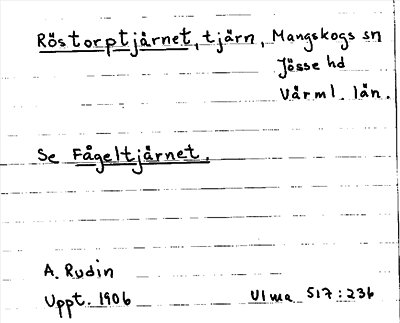 Röstorptjärnet, tjärn, Mangskogs sn
Jösse hd
Värml. län.
Se Fågeltjärnet.
A. Rudin
Uppt. 1906
Ulma 517:236